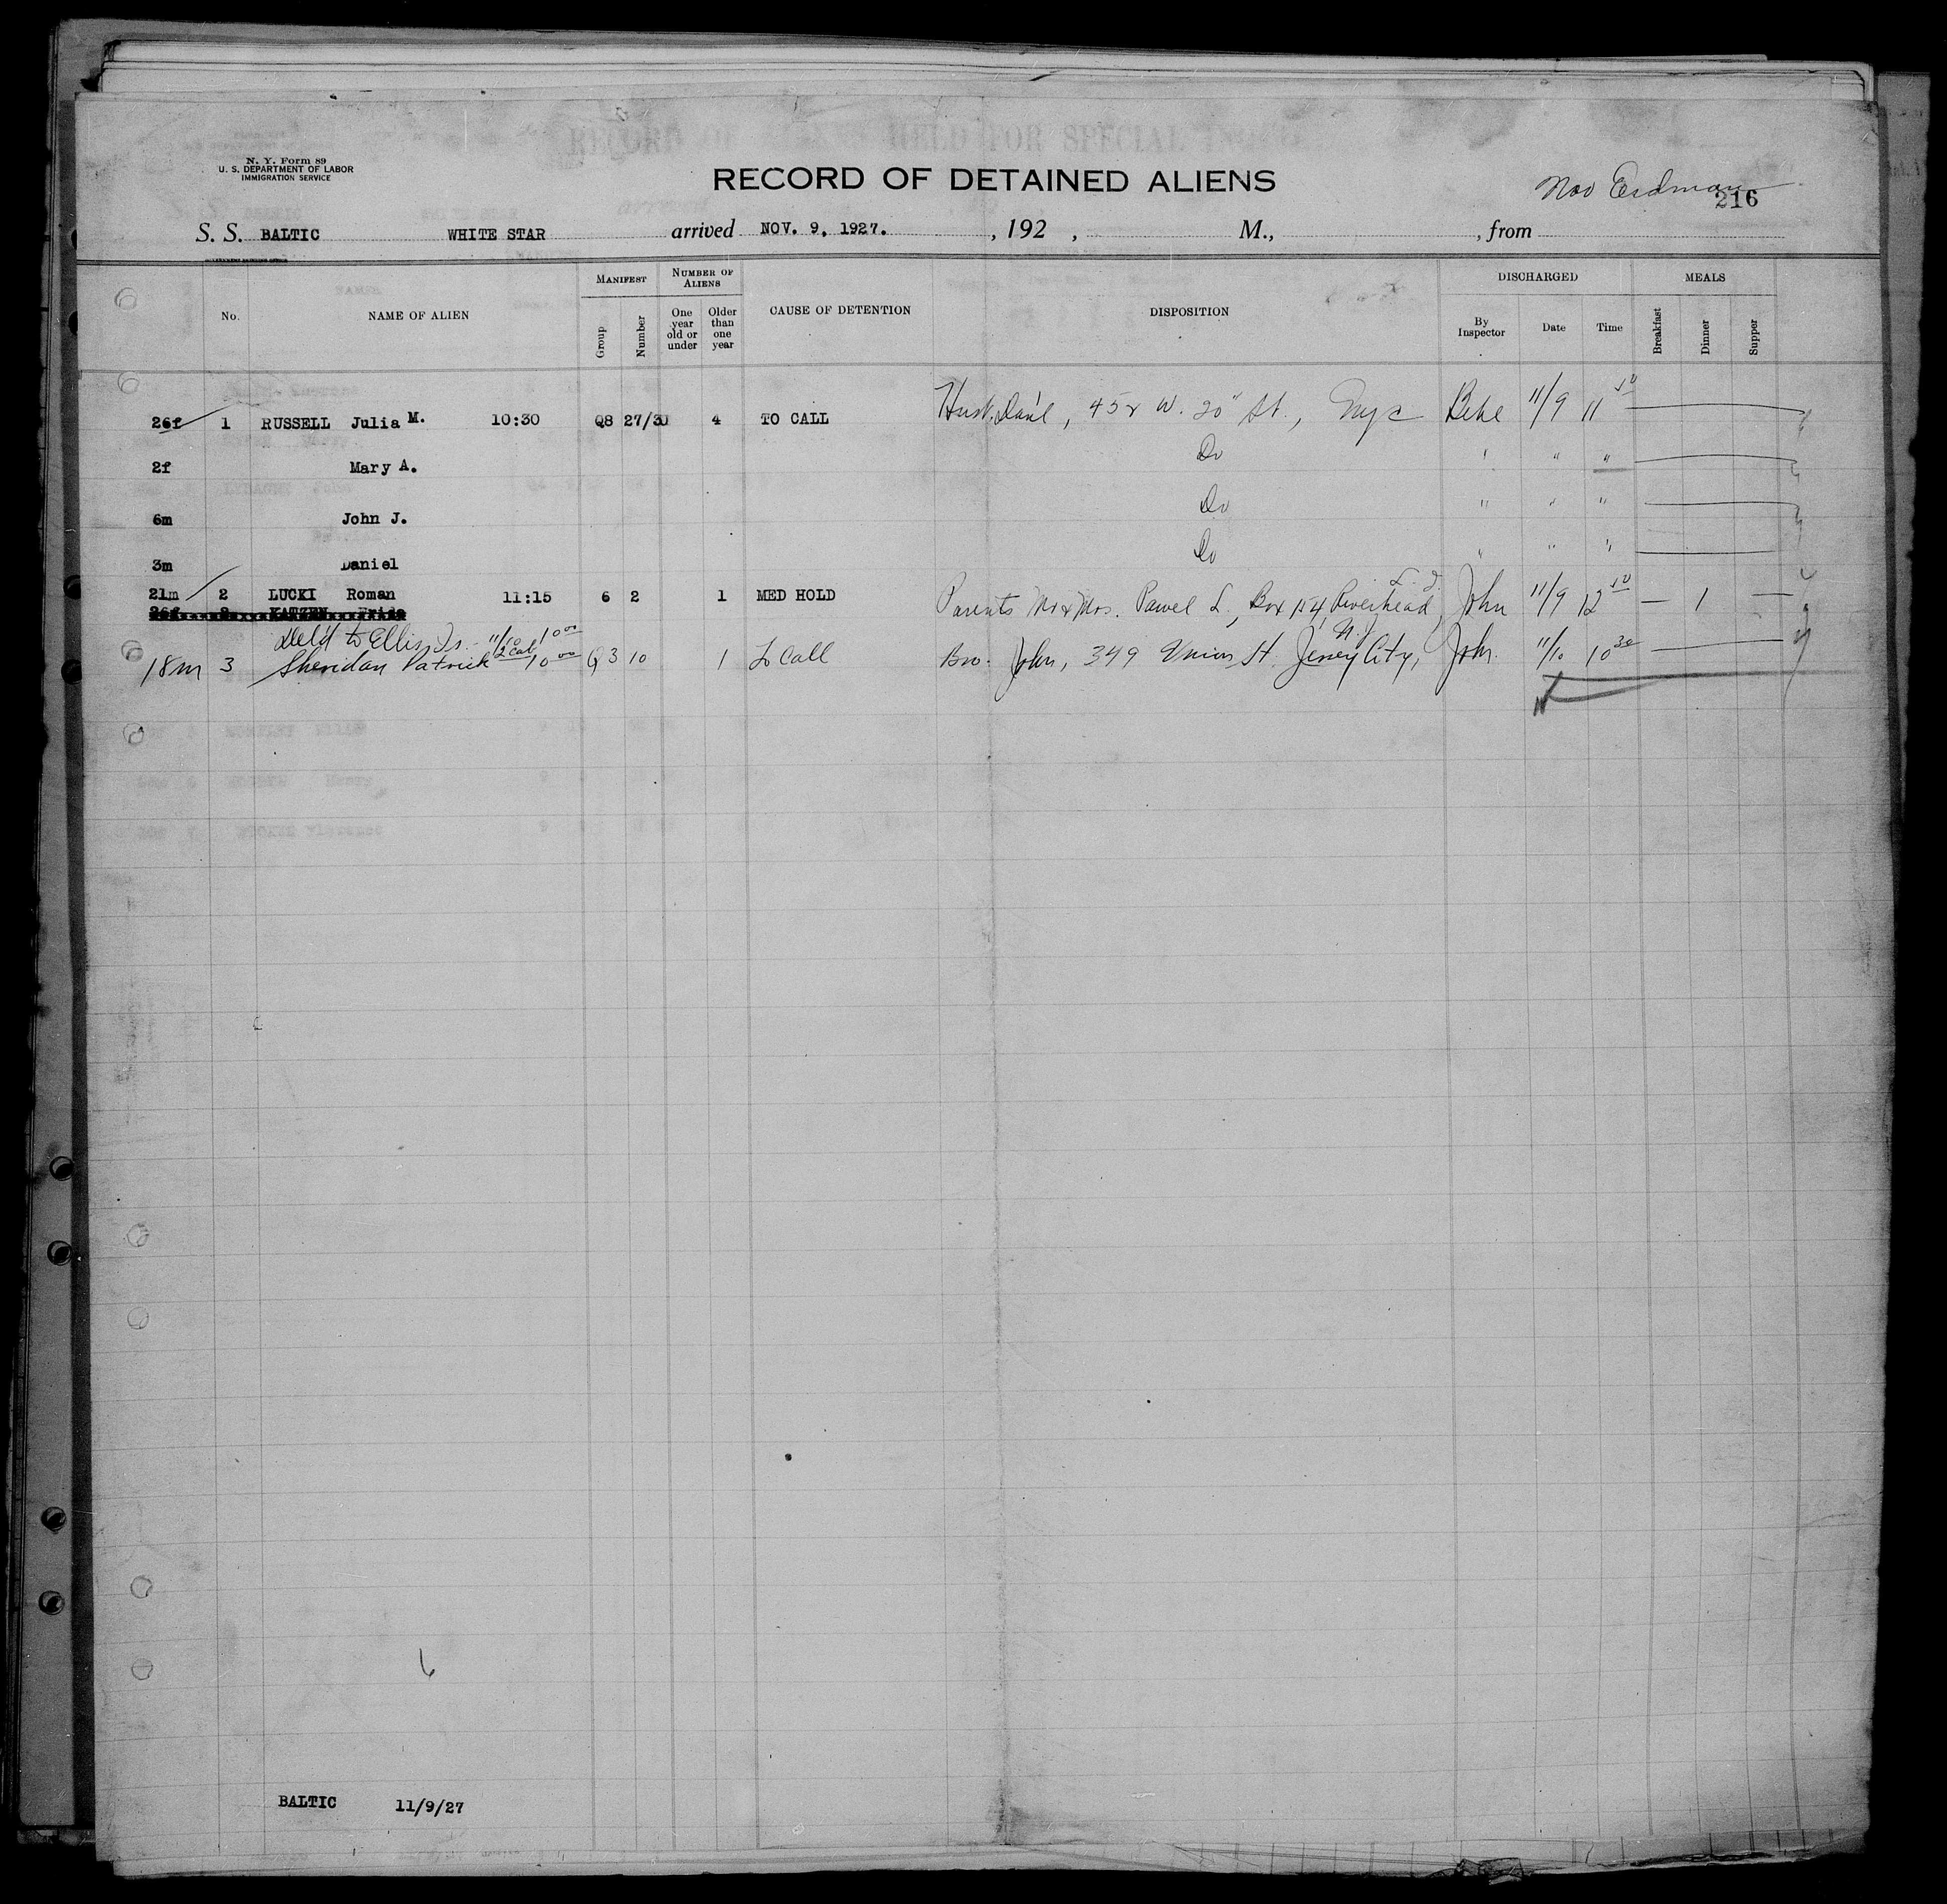 N. Y. Form 89
U. S. DEPARTMENT OF LABOR
IMMIGRATION SERVICE
RECORD OF DETAINED ALIENS
Erdman
216
S. S. BALTIC WHITE STAR arrived NOV. 9, 1927. , 192 , M., , from
No. NAME OF ALIEN MANIFEST Group Number NUMBER OF ALIENS One year old or under Older than one year CAUSE OF DETENTION DISPOSITION DISCHARGED By Inspector Date Time MEALS Breakfast Dinner Supper
26f 1 RUSSELL Julia M. 10:30 Q8 27/30 4 TO CALL Husb. Dan'l, 452 W. 20" St., NYC 11/9 11 50
2f Mary A. Do " " "
6m John J. Do " " "
3m Daniel Do " " "
21m 2 LUCKI Roman 11:15 6 2 1 MED HOLD Parents Mr & Mrs. Pawel L, Box 154, Riverhead, L.I. John 11/9 12 50 — 1 —
26f 2 KATZEN Frida
Del'd to Ellis Is. 11/10 10 00
18m 3 Sheridan Patrick 10 00 Q3 10 1 To Call Bro. John, 349 Union St. Jersey City, N.J. John. 11/10 10 30
6
BALTIC 11/9/27